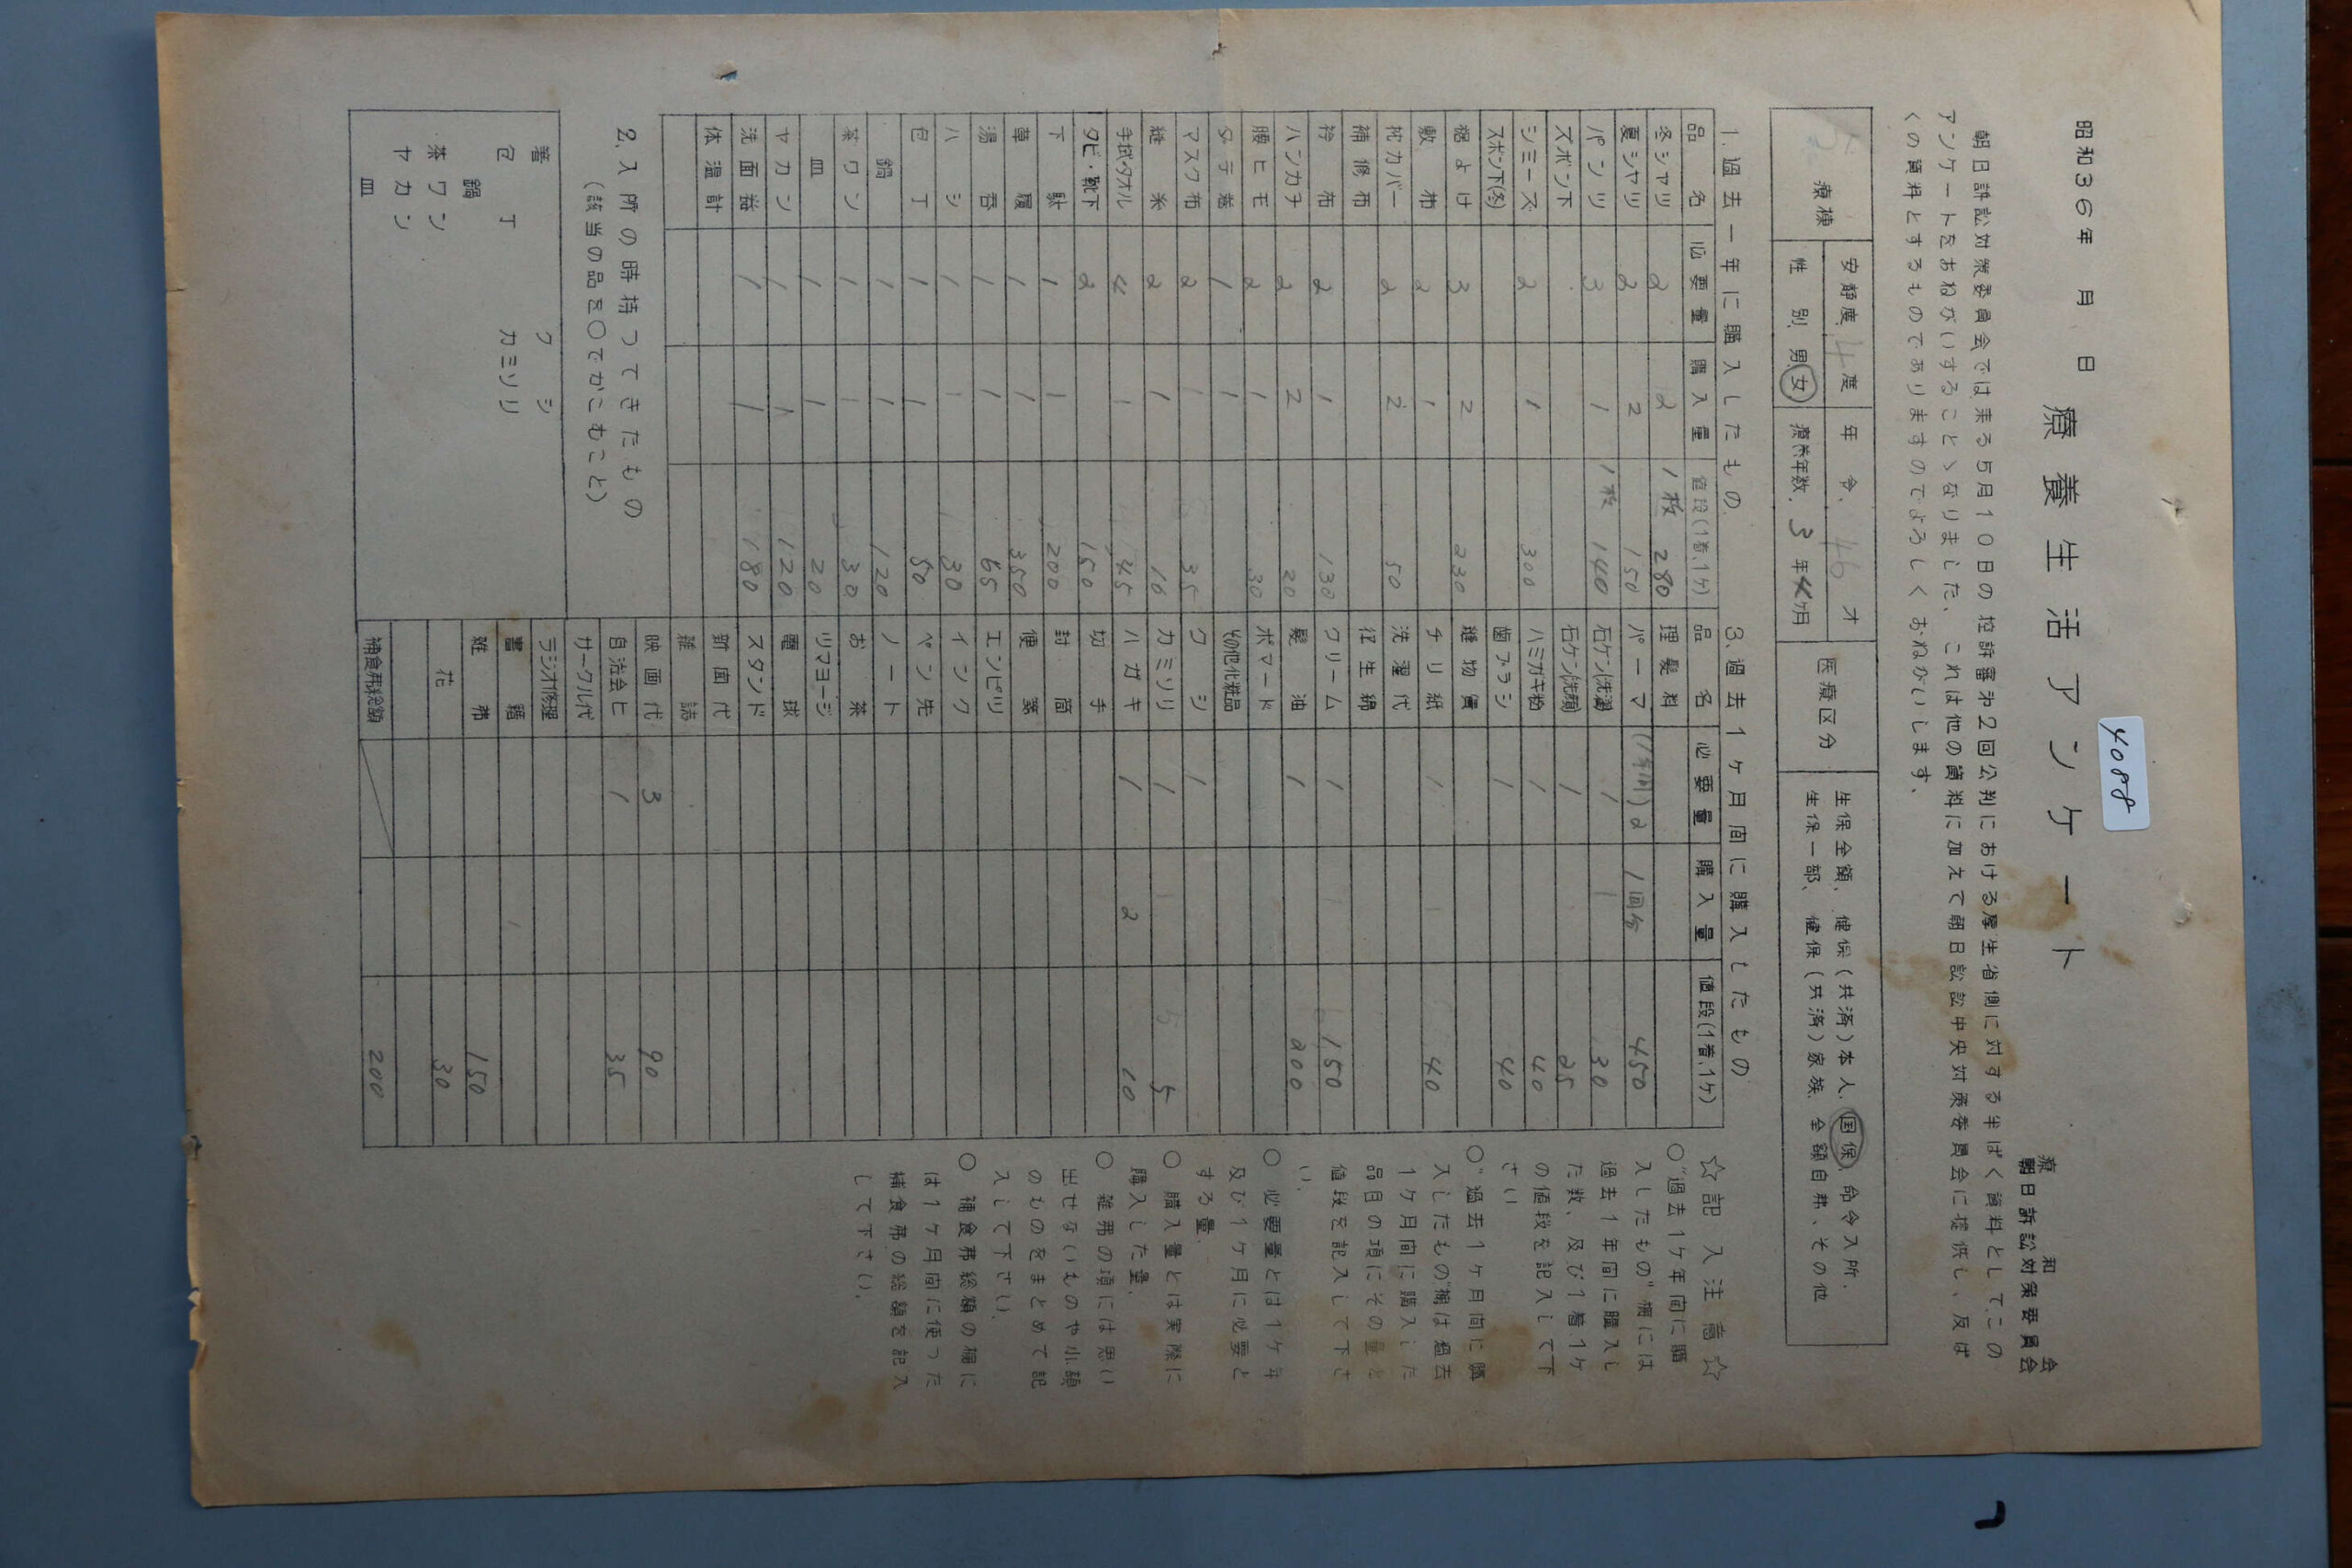 4088
昭和36年 月 日
療養生活アンケート
療和会
朝日訴訟対策委員会
朝日訴訟対策委員会では来る5月10日の控訴審第2回公判における厚生省側に対する半ばく資料としてこの
アンケートをおねがいすることゝなりました、これは他の資料に加えて朝日訴訟中央対策委員会に提供し、及ば
くの資料とするものでありますのでよろしくおねがいします、
療棟
安静度 4度 年令、46才
性別 男 女 療養年数、3年 ヶ月
医療区分
生保全額、健保(共済)本人、国保、命令入所、
生保一部、健保(共済)家族、全額自弗、その他
1. 過去一年に購入したもの
品名 必要量 購入量 値段(1着、1ヶ)
冬シャツ 2 2 1枚 280
夏シャツ 2 2 150
パンツ 3 1 1枚 140
ズボン下
シミーズ 2 1 300
ズボン下(冬)
裾よけ 3 2 230
敷布 2 1
枕カバー 2 2 50
補修布
衿布 2 1 130
ハンカチ 2 2 20
腰ヒモ 2 1 30
ダテ巻 1 1
マスク布 2 1 35
縫糸 2 1 10
手拭・タオル 4 1 45
タビ・靴下 2 150
下駄 1 1 200
草履 1 1 350
湯呑 1 1 65
ハシ 1 1 30
包丁 1 1 50
鍋 1 1 120
茶ワン 1 1 30
皿 1 1 20
ヤカン 1 1 120
洗面器 1 1 180
体温計
2、入所の時持つてきたもの
(該当の品を〇でかこむこと)
箸 クシ
包丁 カミソリ
鍋
茶ワン
ヤカン
皿
3、過去1ヶ月間に購入したもの
品名 必要量 購入量 値段(1着、1ヶ)
理髪料
パーマ (1年間)2 1回分 450
石ケン(洗濯) 1 1 30
石ケン(洗顔) 1 25
ハミガキ粉 1 40
歯ブラシ 1 40
縫物賃
チリ紙 1 1 40
洗濯代
径生綿
クリーム 1 1 150
髪油 1 200
ポマード
その他化粧品
クシ 1
カミソリ 1 1 5
ハガキ 1 2 10
切手
封筒
便箋
エンピツ
インク
ペン先
ノート
お茶
リマヨージ
電球
スタンド
新聞代
雑誌
映画代 3 90
自治会ヒ 1 35
サークル代
ラジオ修理
書籍 1
雑弗 150
花 30
補食弗総額 200
☆記入注意☆
〇"過去1ヶ年間に購
入したもの"欄には
過去1年間に購入し
た数、及び1着1ヶ
の値段を記入して下
さい
〇"過去1ヶ月間に購
入したもの"欄は過去
1ヶ月間に購入した
品目の項にその量と
値段を記入して下さ
い、
〇 必要量とは1ヶ年
及び1ヶ月に必要と
する量、
〇 購入量とは実際に
購入した量、
〇 雑弗の項には思い
出せないものや小額
のものをまとめて記
入して下さい、
〇 補食弗総額の欄に
は1ヶ月間に使った
補食弗の総額を記入
して下さい、